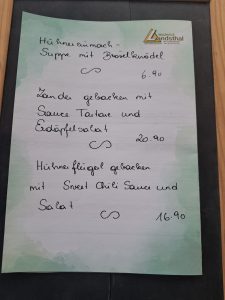 Landsthal
Hühnereinmach-
Suppe mit Bröselknödel
6.90
Zander gebacken mit
Sauce Tartare und
Erdäpfelsalat
20.90
Hühnerflügel gebacken
mit Sweet Chili Sauce und
Salat
16.90